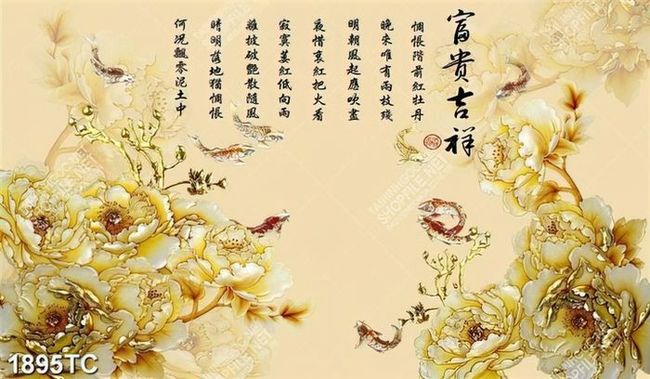 富貴吉祥
惆悵階前紅牡丹
晚來唯有兩枝殘
明朝風起應吹盡
夜惜衰紅把火看
寂寞萎紅低向雨
離披破艷散隨風
晴明落地猶惆悵
何況飄零泥土中
1895TC